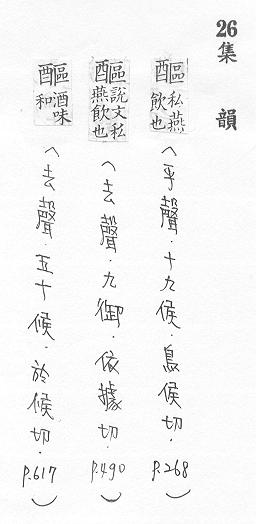 26集韻
醧私燕飲也（平聲．十九侯．烏侯切．P.268）
醧說文私燕飲也（去聲．九御．依據切．P.490）
醧酒味和（去聲．五十候．於候切．P.617）